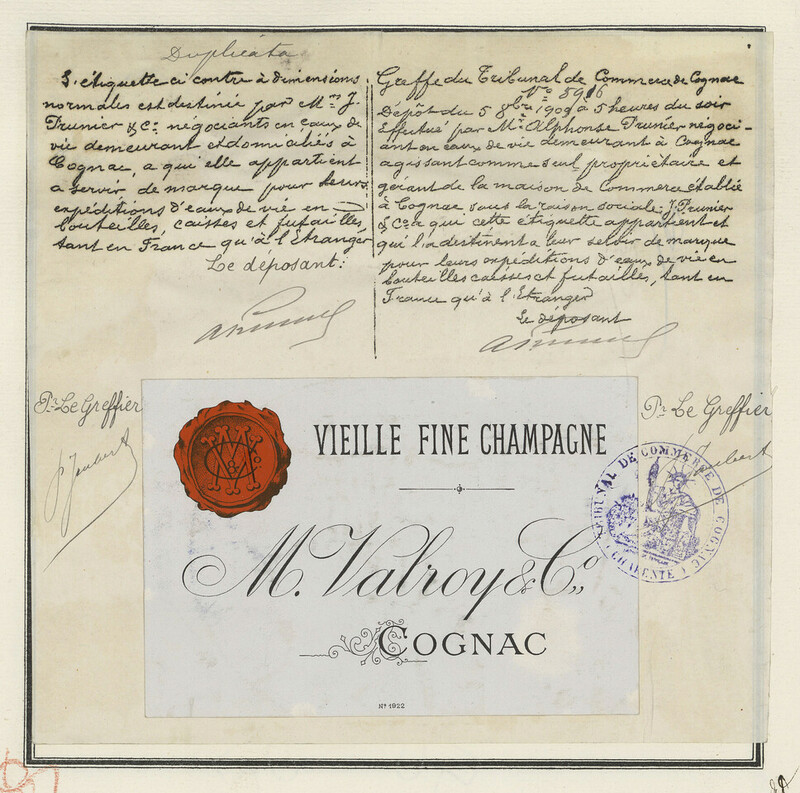 Duplicata
L'étiquette ci contre à dimensions
normales est destinée par Mrs J.
Prunier & Co négociants en eaux de
vie demeurant et domiciliés à
Cognac, a qui elle appartient
a servir de marque pour leurs
expéditions d'eaux de vie en
bouteilles, caisses et futailles,
tant en France qu'à l'Etranger
Le déposant:
Greffe du Tribunal de Commerce de Cognac
No 5916
Dépôt du 5 8bre 1909 à 5 heures du soir
Effectué par Mr Alphonse Prunier négoci-
ant en eaux de vie demeurant à Cognac
agissant comme seul propriétaire et
gérant de la maison de Commerce établie
à Cognac sous la raison sociale: J. Prunier
& Co a qui cette étiquette appartient et
qui l'a destinent a leur servir de marque
pour leurs expéditions d'eaux de vie en
bouteilles caisses et futailles, tant en
France qu'à l'Etranger
Le déposant
Pr Le Greffier
Pr Le Greffier
VIEILLE FINE CHAMPAGNE
M. Valroy & Co,,
COGNAC
No 1922
TRIBUNAL DE COMMERCE DE COGNAC
CHARENTE